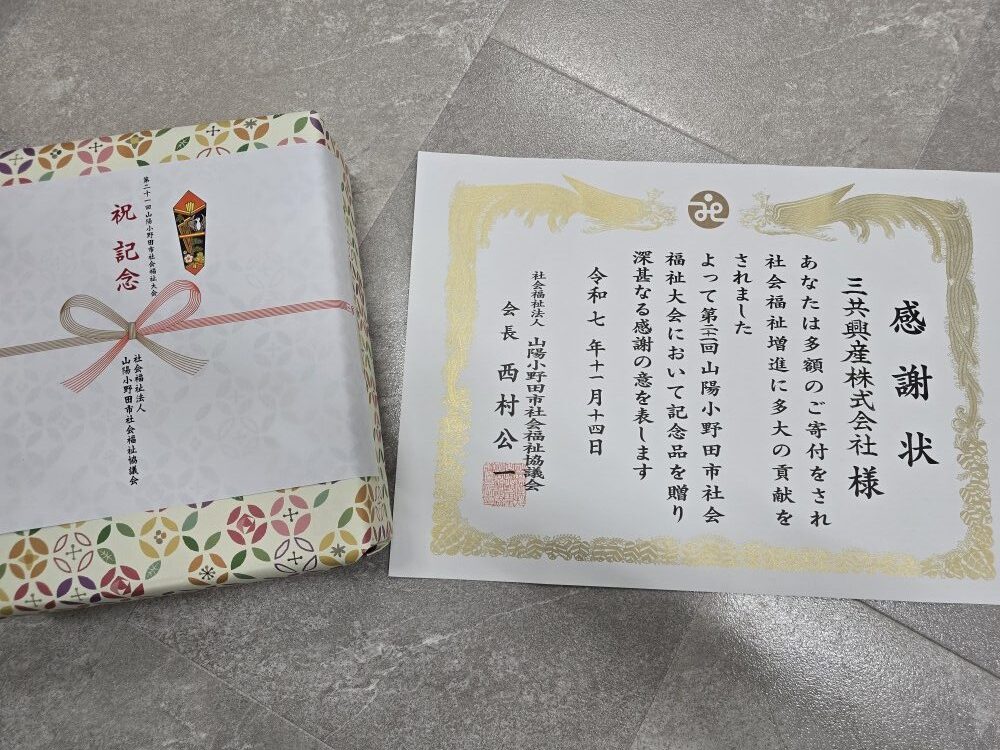 第二十一回山陽小野田市社会福祉大会
祝 記念
社会福祉法人
山陽小野田市社会福祉協議会
感謝状
三共興産株式会社 様
あなたは多額のご寄付をされ
社会福祉増進に多大の貢献を
されました
よって第二十一回山陽小野田市社会
福祉大会において記念品を贈り
深甚なる感謝の意を表します
令和七年十一月十四日
社会福祉法人 山陽小野田市社会福祉協議会
会長 西村公一